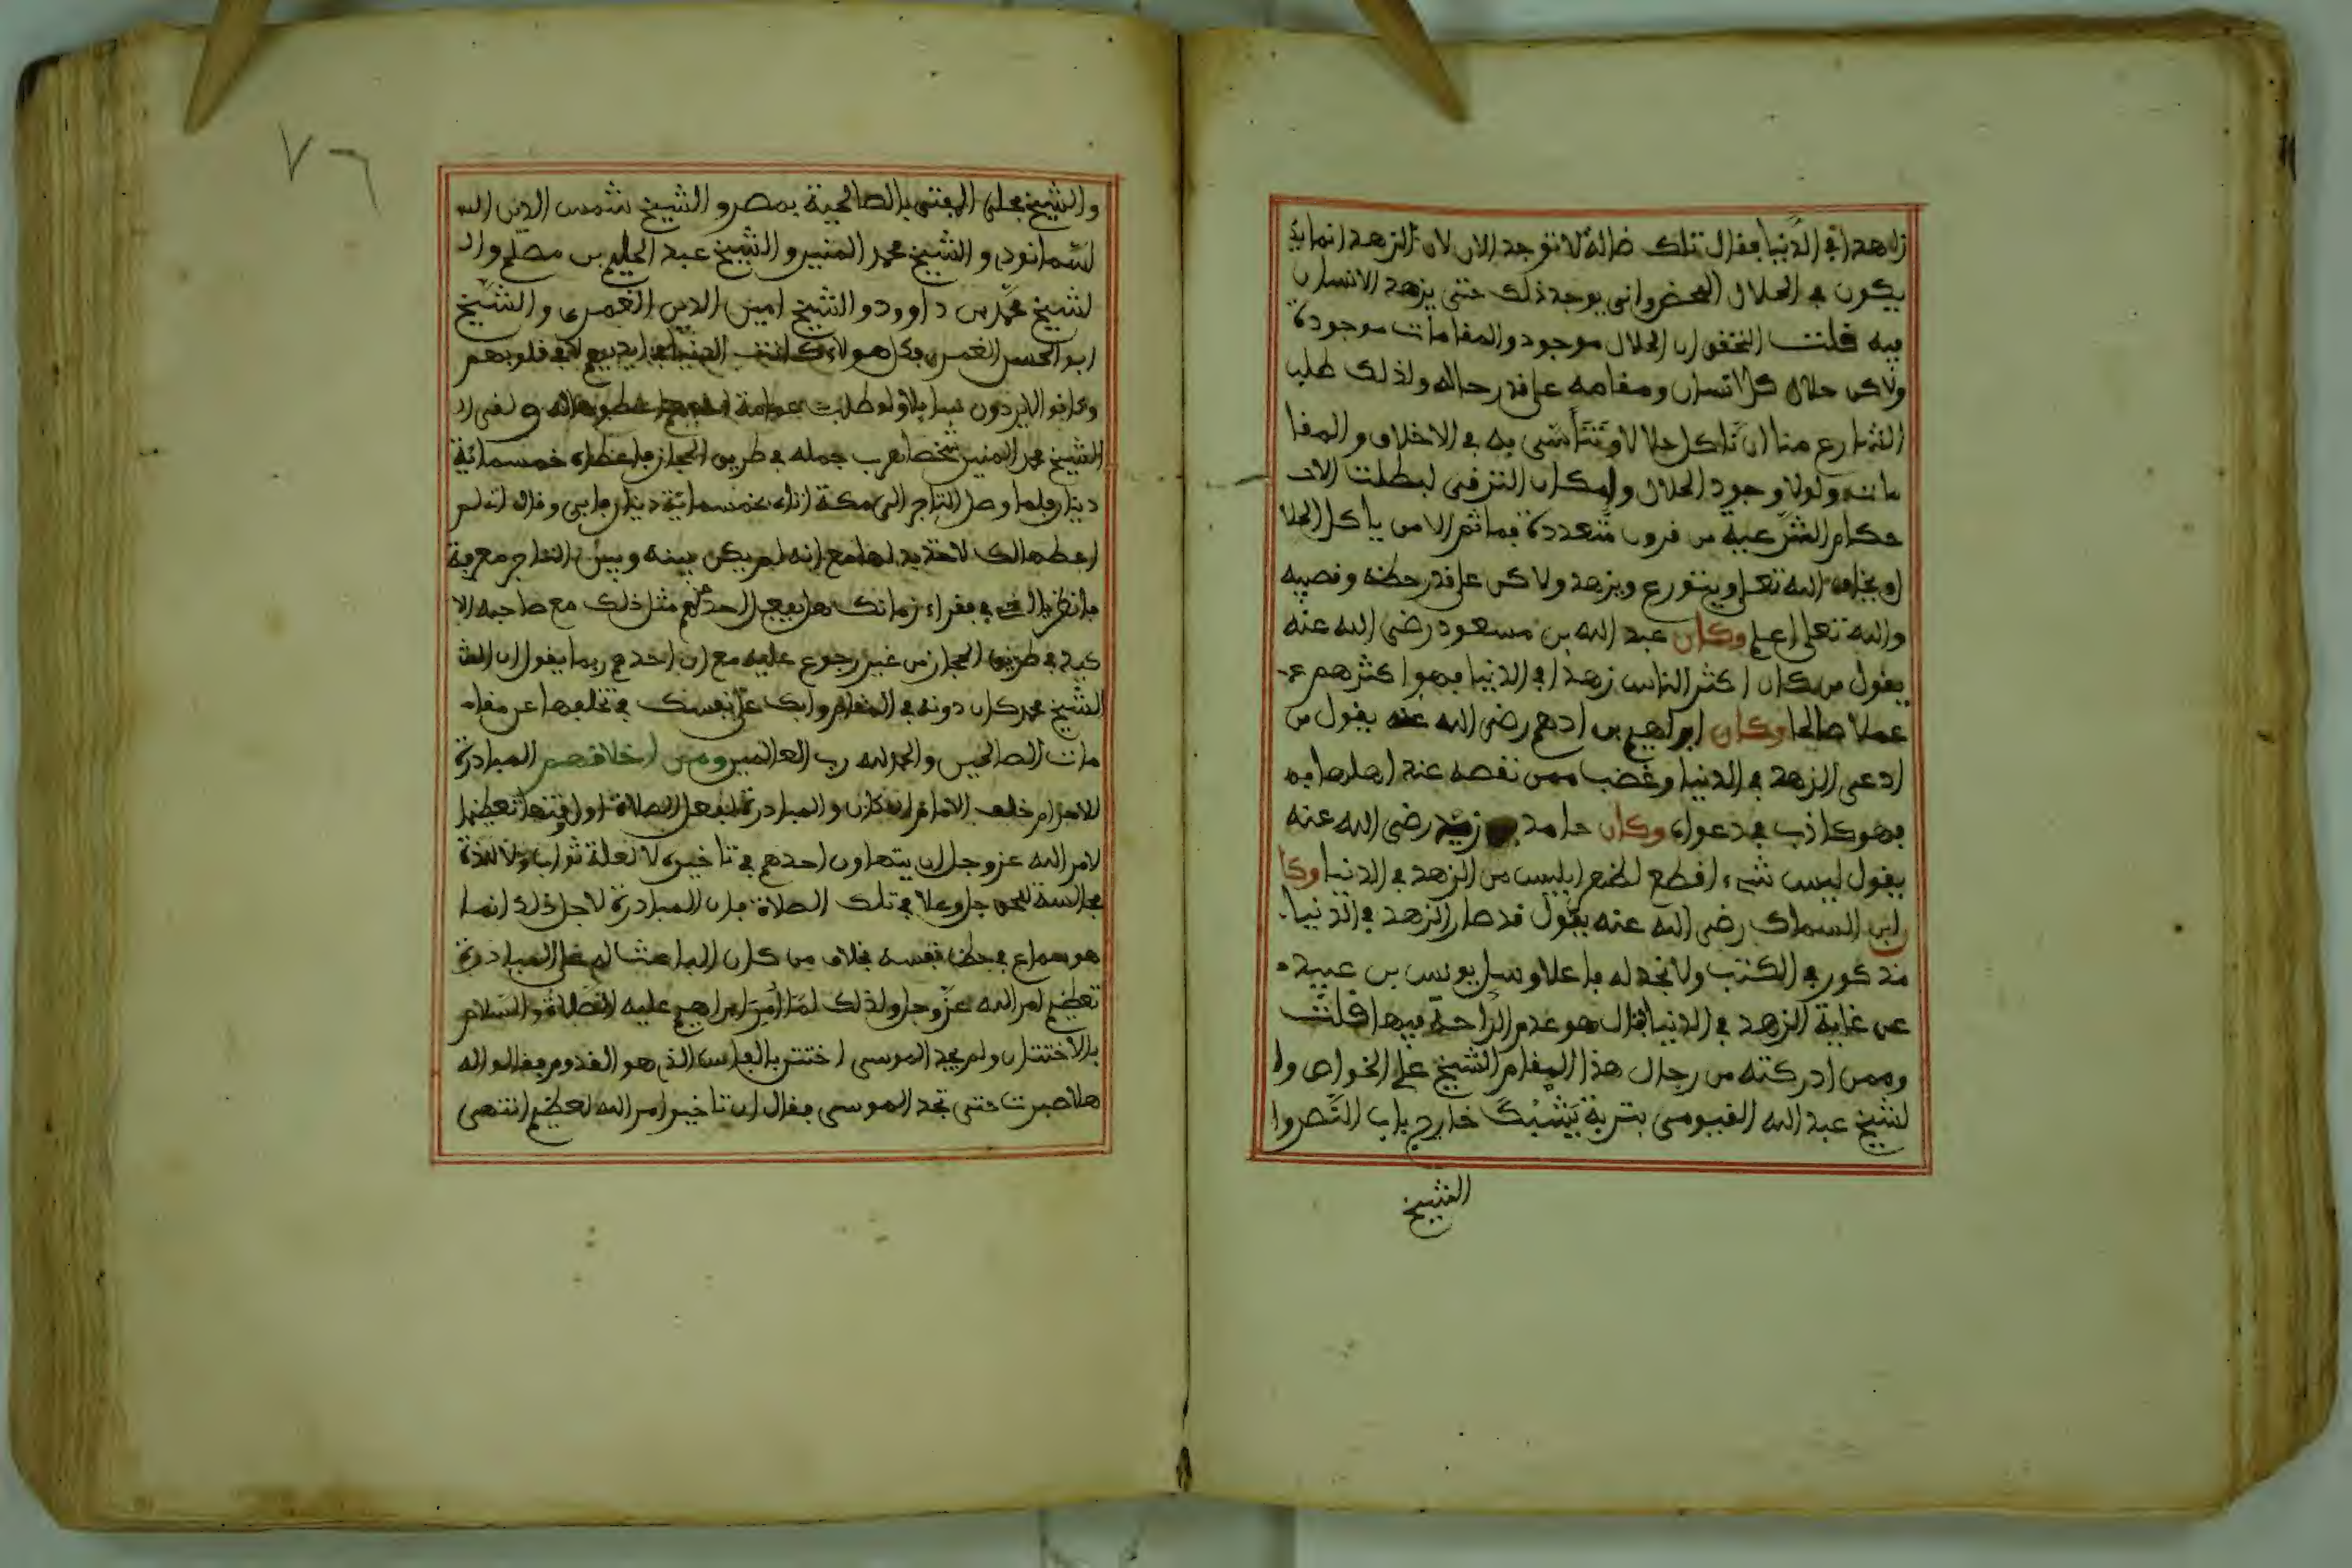 زاهدا في الدنيا فقال تلك ضالة لا توجد الان لان الزهد انما
يكون في الحلال المحض واني يوجد ذلك حتى يزهد الانسان
فيه قلت التحقق ان الحلال موجود والمقامات موجودة
ولاكن حلال كل انسان ومقامه على قدر حاله ولذلك طلب
الشارع منا ان ناكل حلالا ونتأسى به في الاخلاق والمقا
ماته ولولا وجود الحلال وامكان الترقي لبطلت الاحـ
كام الشرعية من قرون متعددة فما ثم الا من ياكل الحلا
او يخاف الله تعلى ويتورع ويزهد ولاكن على قدر حظه ونصيبه
والله تعلى اعلم وكان عبد الله بن مسعود رضي الله عنه
يقول من كان اكثر الناس زهدا في الدنيا فهو اكثرهم
عملا صالحا وكان ابراهيم بن ادهم رضي الله عنه يقول من
ادعى الزهد في الدنيا وغضب ممن نقصه عند اهلها
فهو كاذب في دعواه وكان حامد زيد رضي الله عنه
يقول ليس شيء اقطع لظهر ابليس من الزهد في الدنيا وكا
ن ابن السماك رضي الله عنه يقول قد صار الزهد في الدنيا
مذكور في الكتب ولا نجد له فاعلا وسل يونس بن عبيد
عن غاية الزهد في الدنيا فقال هو عدم الراحة فيها قلت
وممن ادركته من رجال هذا المقام الشيخ علي الخواص وا
لشيخ عبد الله الفيومي بتربة يشبك خارج باب النصر وا
الشيخ
٧٦
والشيخ علي المفتي بالصالحية بمصر والشيخ شمس الدين
لسمانودي والشيخ محمد المنير والشيخ عبد الحليم بن مصلح والـ
لشيخ محمد بن داوود والشيخ امين الدين الغمري والشيخ
ابو الحسن الغمري فكل هولاء كانت الدنيا في ايديهم لا في قلوبهم
وكانوا لا يردون سايلا ولو طلب عمامة
الشيخ محمد المنير شخصا هرب جمله في طريق الحجاز فاعطاه خمسمائة
دينار فلما وصل التاجر الى مكة اتاه بخمسمائة دينار فابى وقال انه لم
اعطها لك لاخذ بدلها مع انه لم يكن بينه وبين التاجر معرفة
فانظر يا اخي في فقراء زمانك هل يفعل احد منهم مثل ذلك مع صاحبه الا
كيد في طريق الحجاز من غير رجوع عليه مع ان احدهم ربما يقول ان الشـ
الشيخ محمد كان دونه في المقام وابك على نفسك في تخلفها عن مقاه
مات الصالحين والحمد لله رب العالمين ومن اخلاقهم المبادرة
للاحرام خلف الامام ان كان والمبادرة لفعل الصلاة اول وقتها تعظيما
لامر الله عز وجل ان يتهاون احدهم في تاخيره لا لعلة ثواب ولا لذة
مجالسة للحق جل وعلا في تلك الصلاة فان المبادرة لاجل ذلك انما
هو سماع في حظ نفسه بخلاف من كان الباعث له على المبادرة
تعظيم امر الله عز وجل ولذلك لما امر ابراهيم عليه الصلاة والسلام
بالاختتان ولم يجد الموسى اختتن بالفاس الذي هو القدوم فقالوا له
هلا صبرت حتى تجد الموسى فقال ان تاخير امر الله لعظيم انتهى